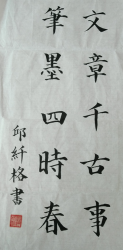 文章千古事
筆墨四時春
邱纤格書